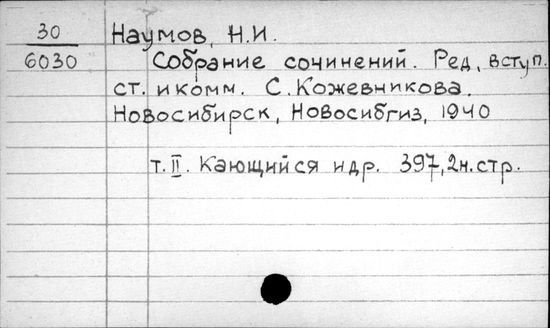 30 Наумов, Н.И.
6030 Собрание сочинений. Ред, вступ.
ст. и комм. С. Кожевникова.
Новосибирск, Новосибгиз, 1940
т. II. Кающийся и др. 397, 2 н. стр.